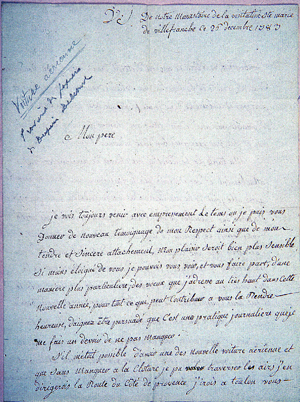 V. J. De notre monastere de la visitation Ste marie
de villefranche ce 25e decembre 1783
Voiture aérienne
Provient de papiers
de
Mon pere
je vois toujours venir avec empressement le tems ou je puis vous
Donner de nouveau temoignage de mon Respect ainsi que de mon
tendre et sincere attachement, mon plaisir seroit bien plus sensible
Si moins eloigné de vous je pouvois vous voir, et vous faire part, dune
maniere plus particuliere, des vœux que j'adresse au ciel dans cette
Nouvelle année, pour tout ce que peut Contribuer a vous la Rendre
heureuse, daignez être persuadé que C'est une pratique journaliere que je
me fais un devoir de ne pas Manquer.
S'il métoit possible davoir une des Nouvelle voiture aérienne et
que sans Manquer a la Cloture je pu traverser les airs j'en
dirigerois la Route du Côté de provence j'irois a toulon vous